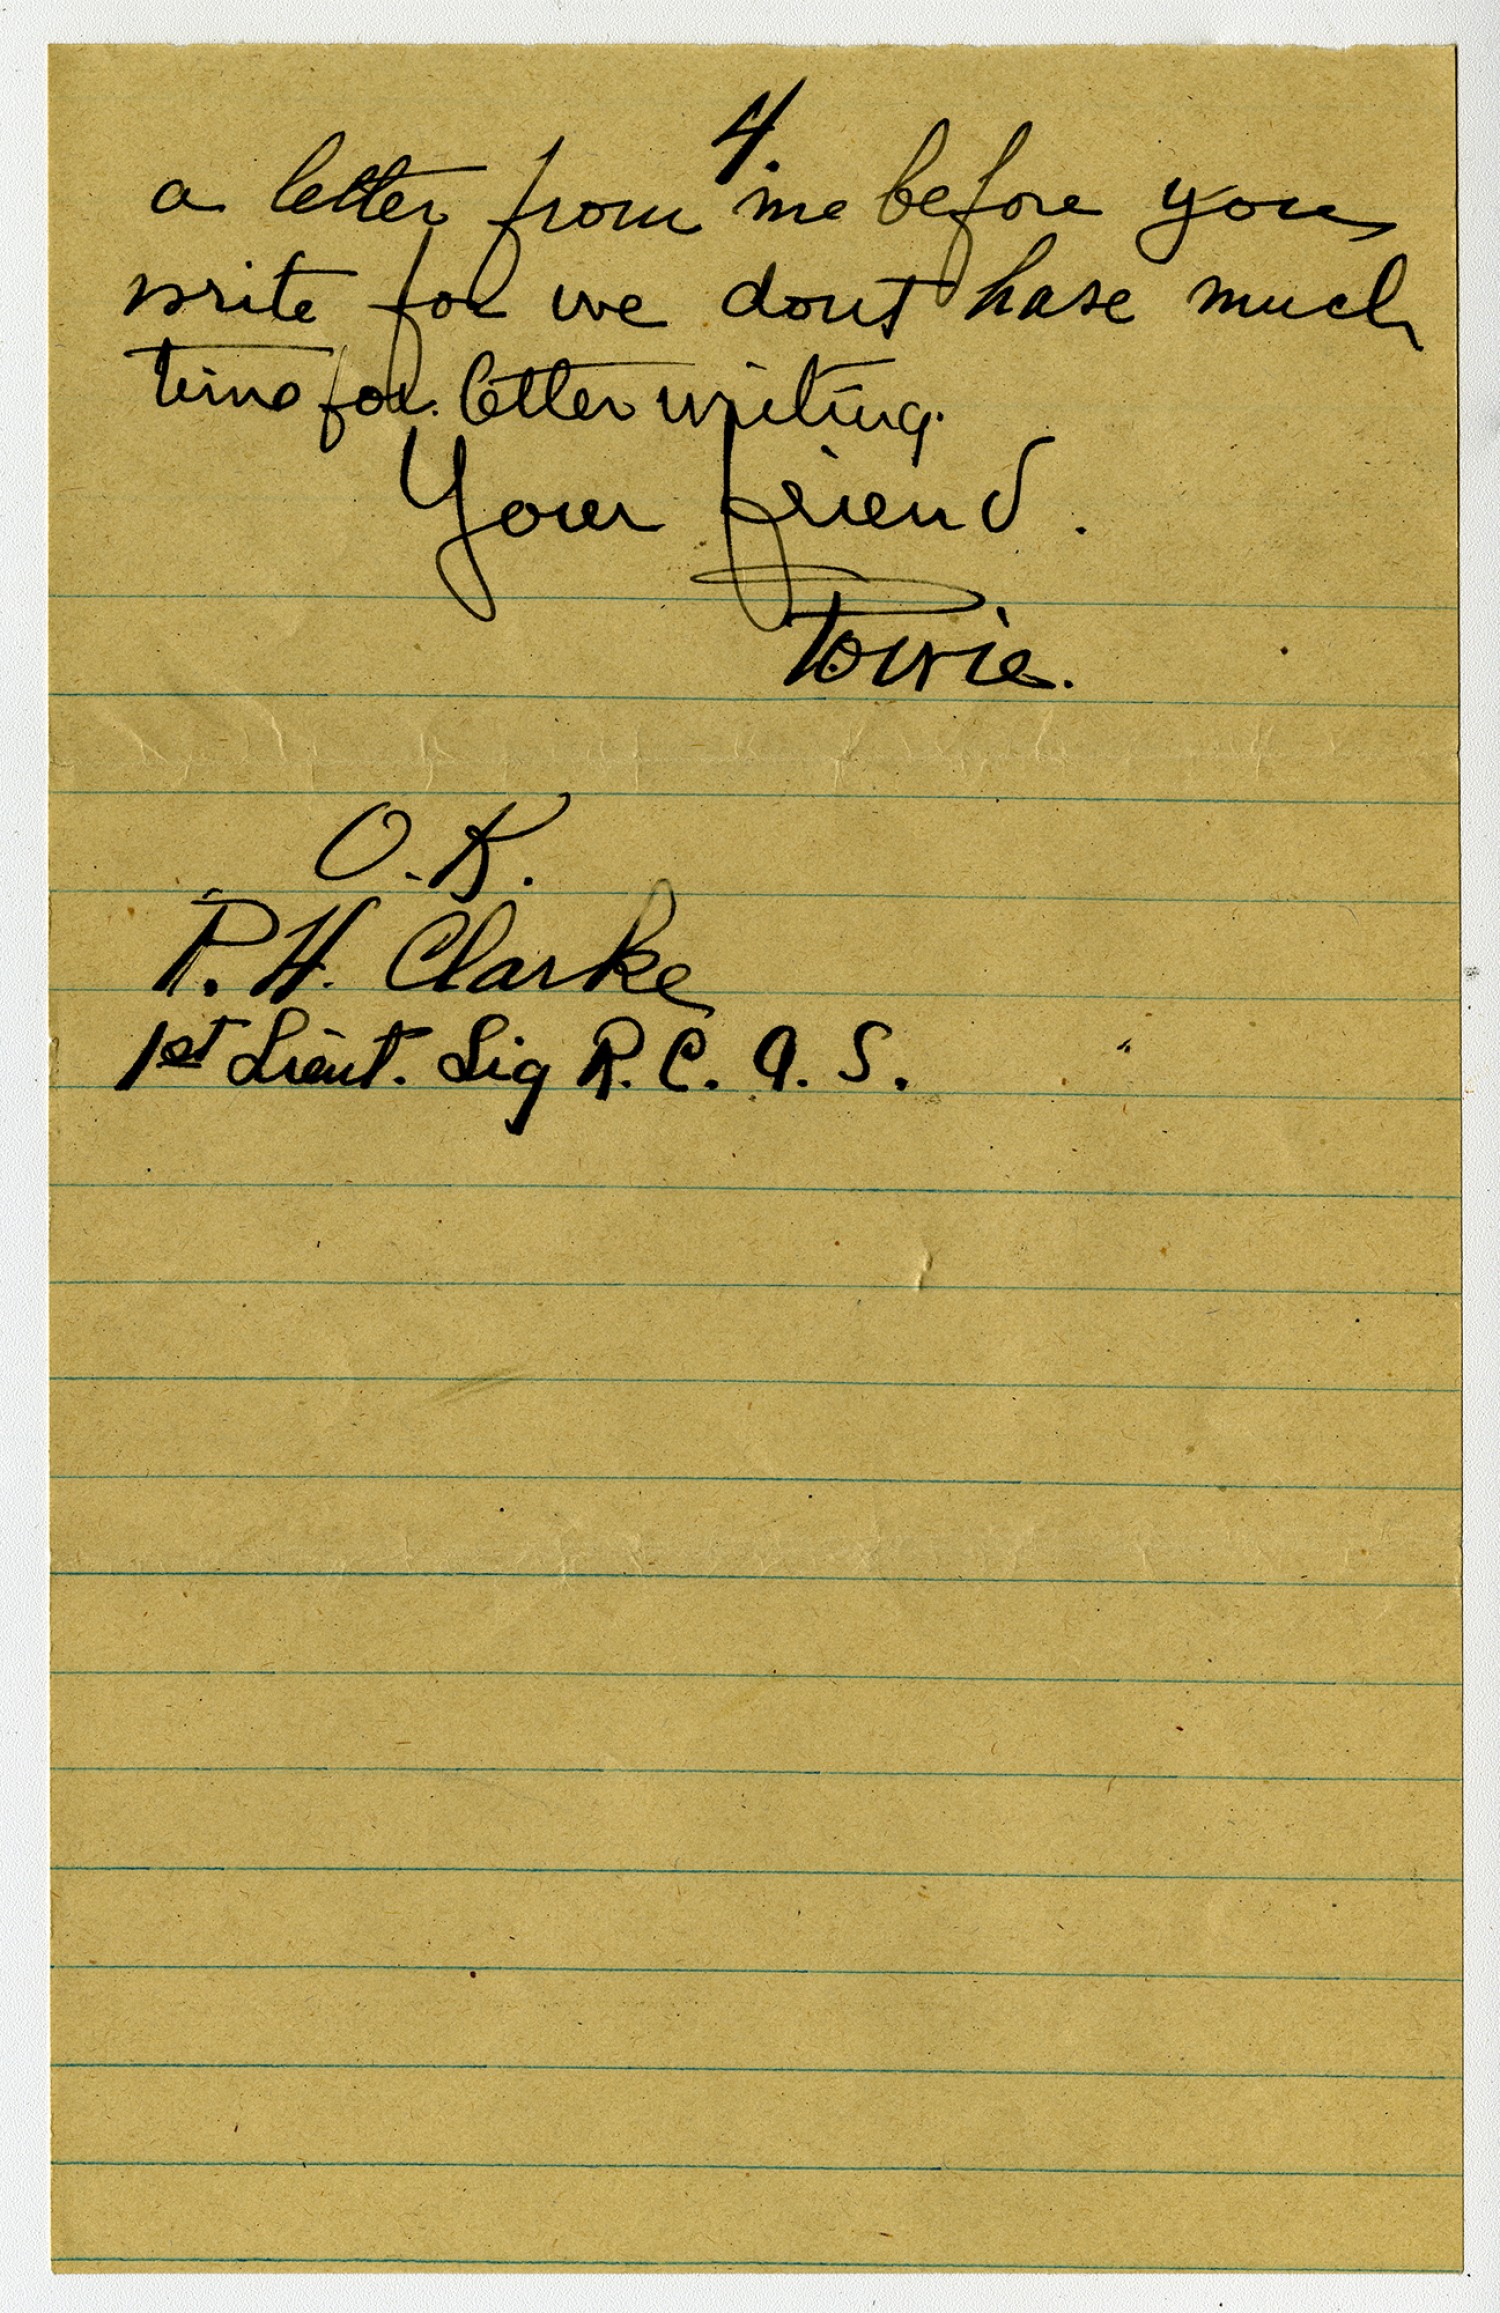 4.
a letter from me before you
write for we dont have much
time for letter writing.
Your friend.
O.K.
P. H. Clarke
1st Lieut. Sig R. C. A. S.